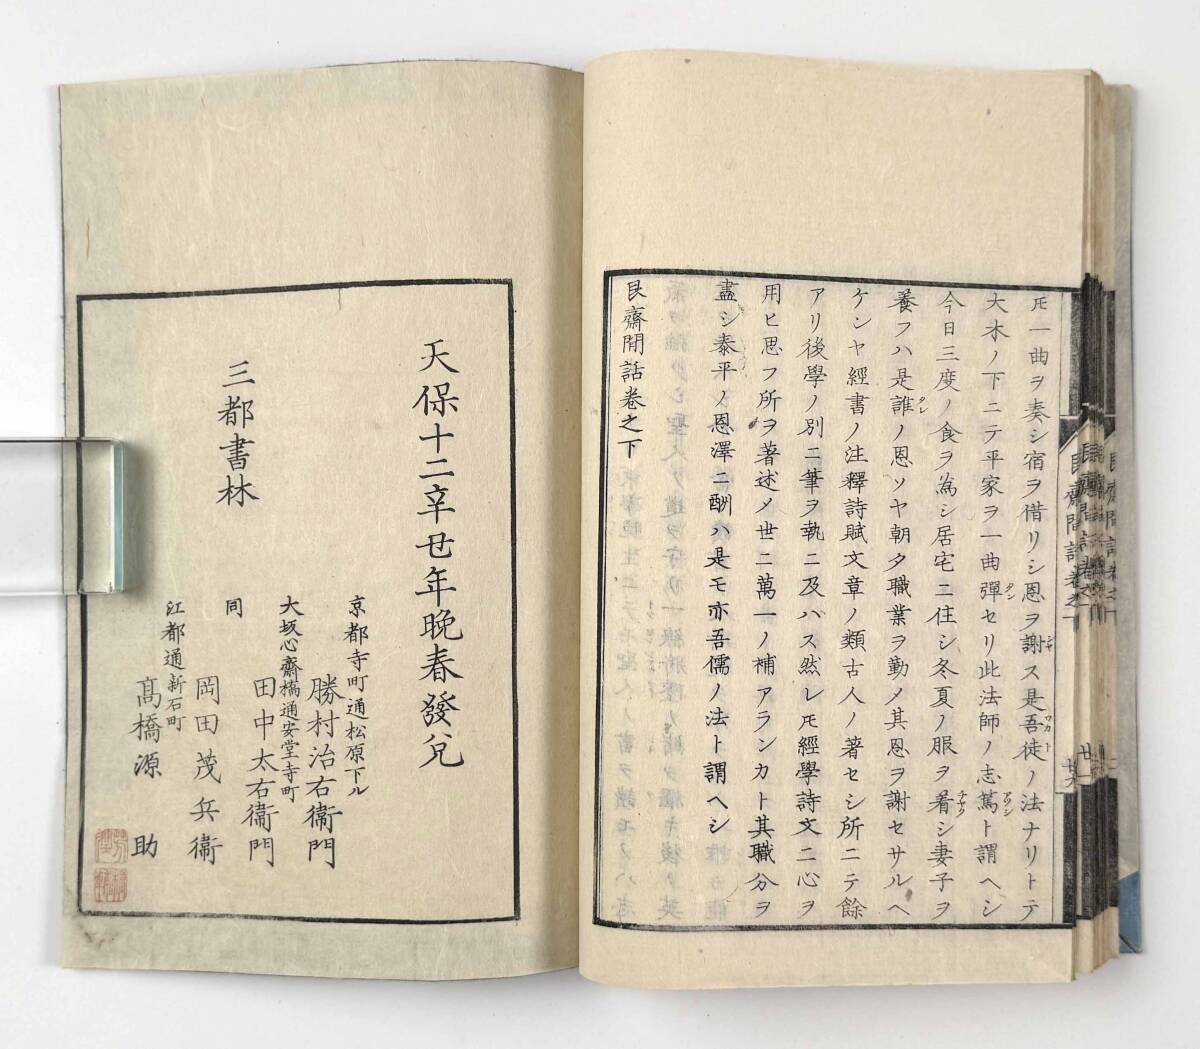 𪜈一曲ヲ奏シ宿ヲ借リシ恩ヲ謝ス是吾徒ノ法ナリトテ
大木ノ下ニテ平家ヲ一曲彈セリ此法師ノ志篤ト謂ヘシ
今日三度ノ食ヲ為シ居宅ニ住シ冬夏ノ服ヲ着シ妻子ヲ
養フハ是誰ノ恩ソヤ朝夕職業ヲ勤メ其恩ヲ謝セサルヘ
ケンヤ經書ノ注釋詩賦文章ノ類古人ノ著セシ所ニテ餘
アリ後學ノ別ニ筆ヲ執ニ及ハス然レ𪜈經學詩文ニ心ヲ
用ヒ思フ所ヲ著述メ世ニ萬一ノ補アランカト其職分ヲ
盡シ泰平ノ恩澤ニ酬ハ是モ亦吾儒ノ法ト謂ヘシ
艮齋閒話卷之下
天保十二辛丑年晩春發兌
三都書林
京都寺町通松原下ル
勝村治右衞門
大坂心齋橋通安堂寺町
田中太右衞門
同
岡田茂兵衞
江都通新石町
髙橋源助